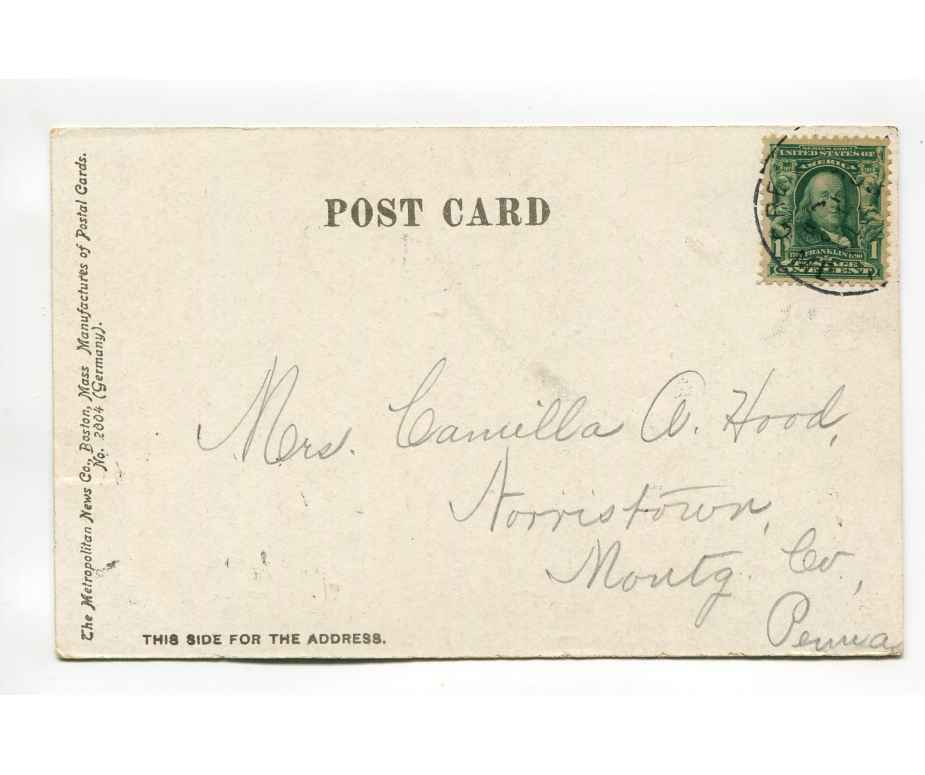 The Metropolitan News Co., Boston, Mass Manufactures of Postal Cards.
No. 2004 (Germany).
POST CARD
SERIES 1902
UNITED STATES OF
AMERICA
1 FRANKLIN 1
POSTAGE
ONE CENT
Mrs. Camilla A. Hood,
Norristown,
Montg. Co,
Penna
THIS SIDE FOR THE ADDRESS.